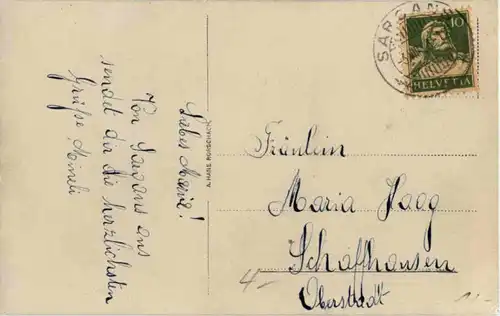 Liebe Maria!
Von Sargans aus
sendet dir die herzlichsten
Grüße Mineli
A. HABS, RORSCHACH.
SARGANS
10
HELVETIA
Fräulein
Maria Haag
Schaffhausen
Oberstadt
4.-